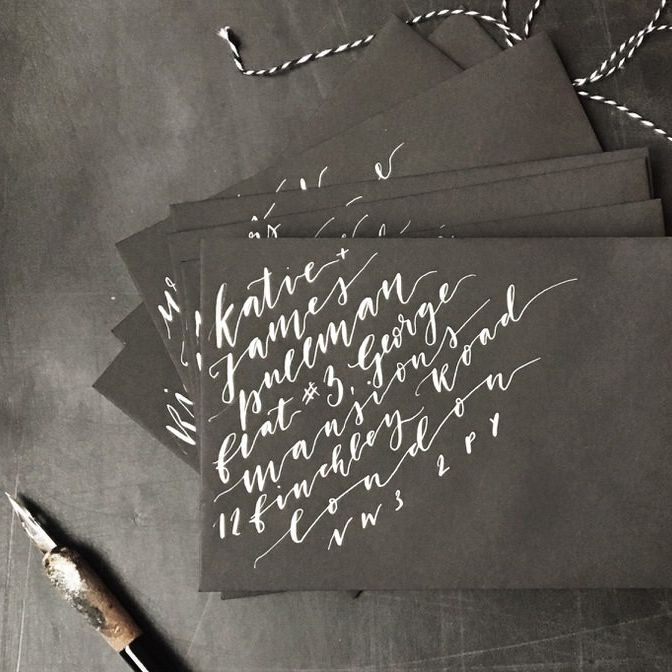 Katie +
James
Pullman
flat #3, George
mansions
12 finchley Road
London
NW3 2PY